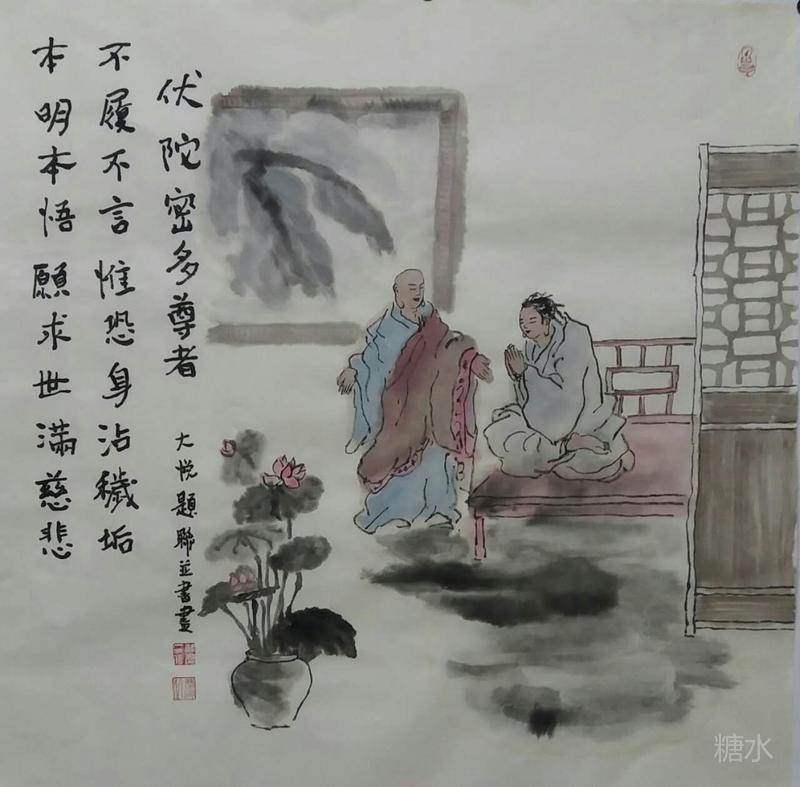 伏陀密多尊者
大悦題聯並書畫
不履不言惟恐身沾穢垢
本明本悟願求世滿慈悲
糖水